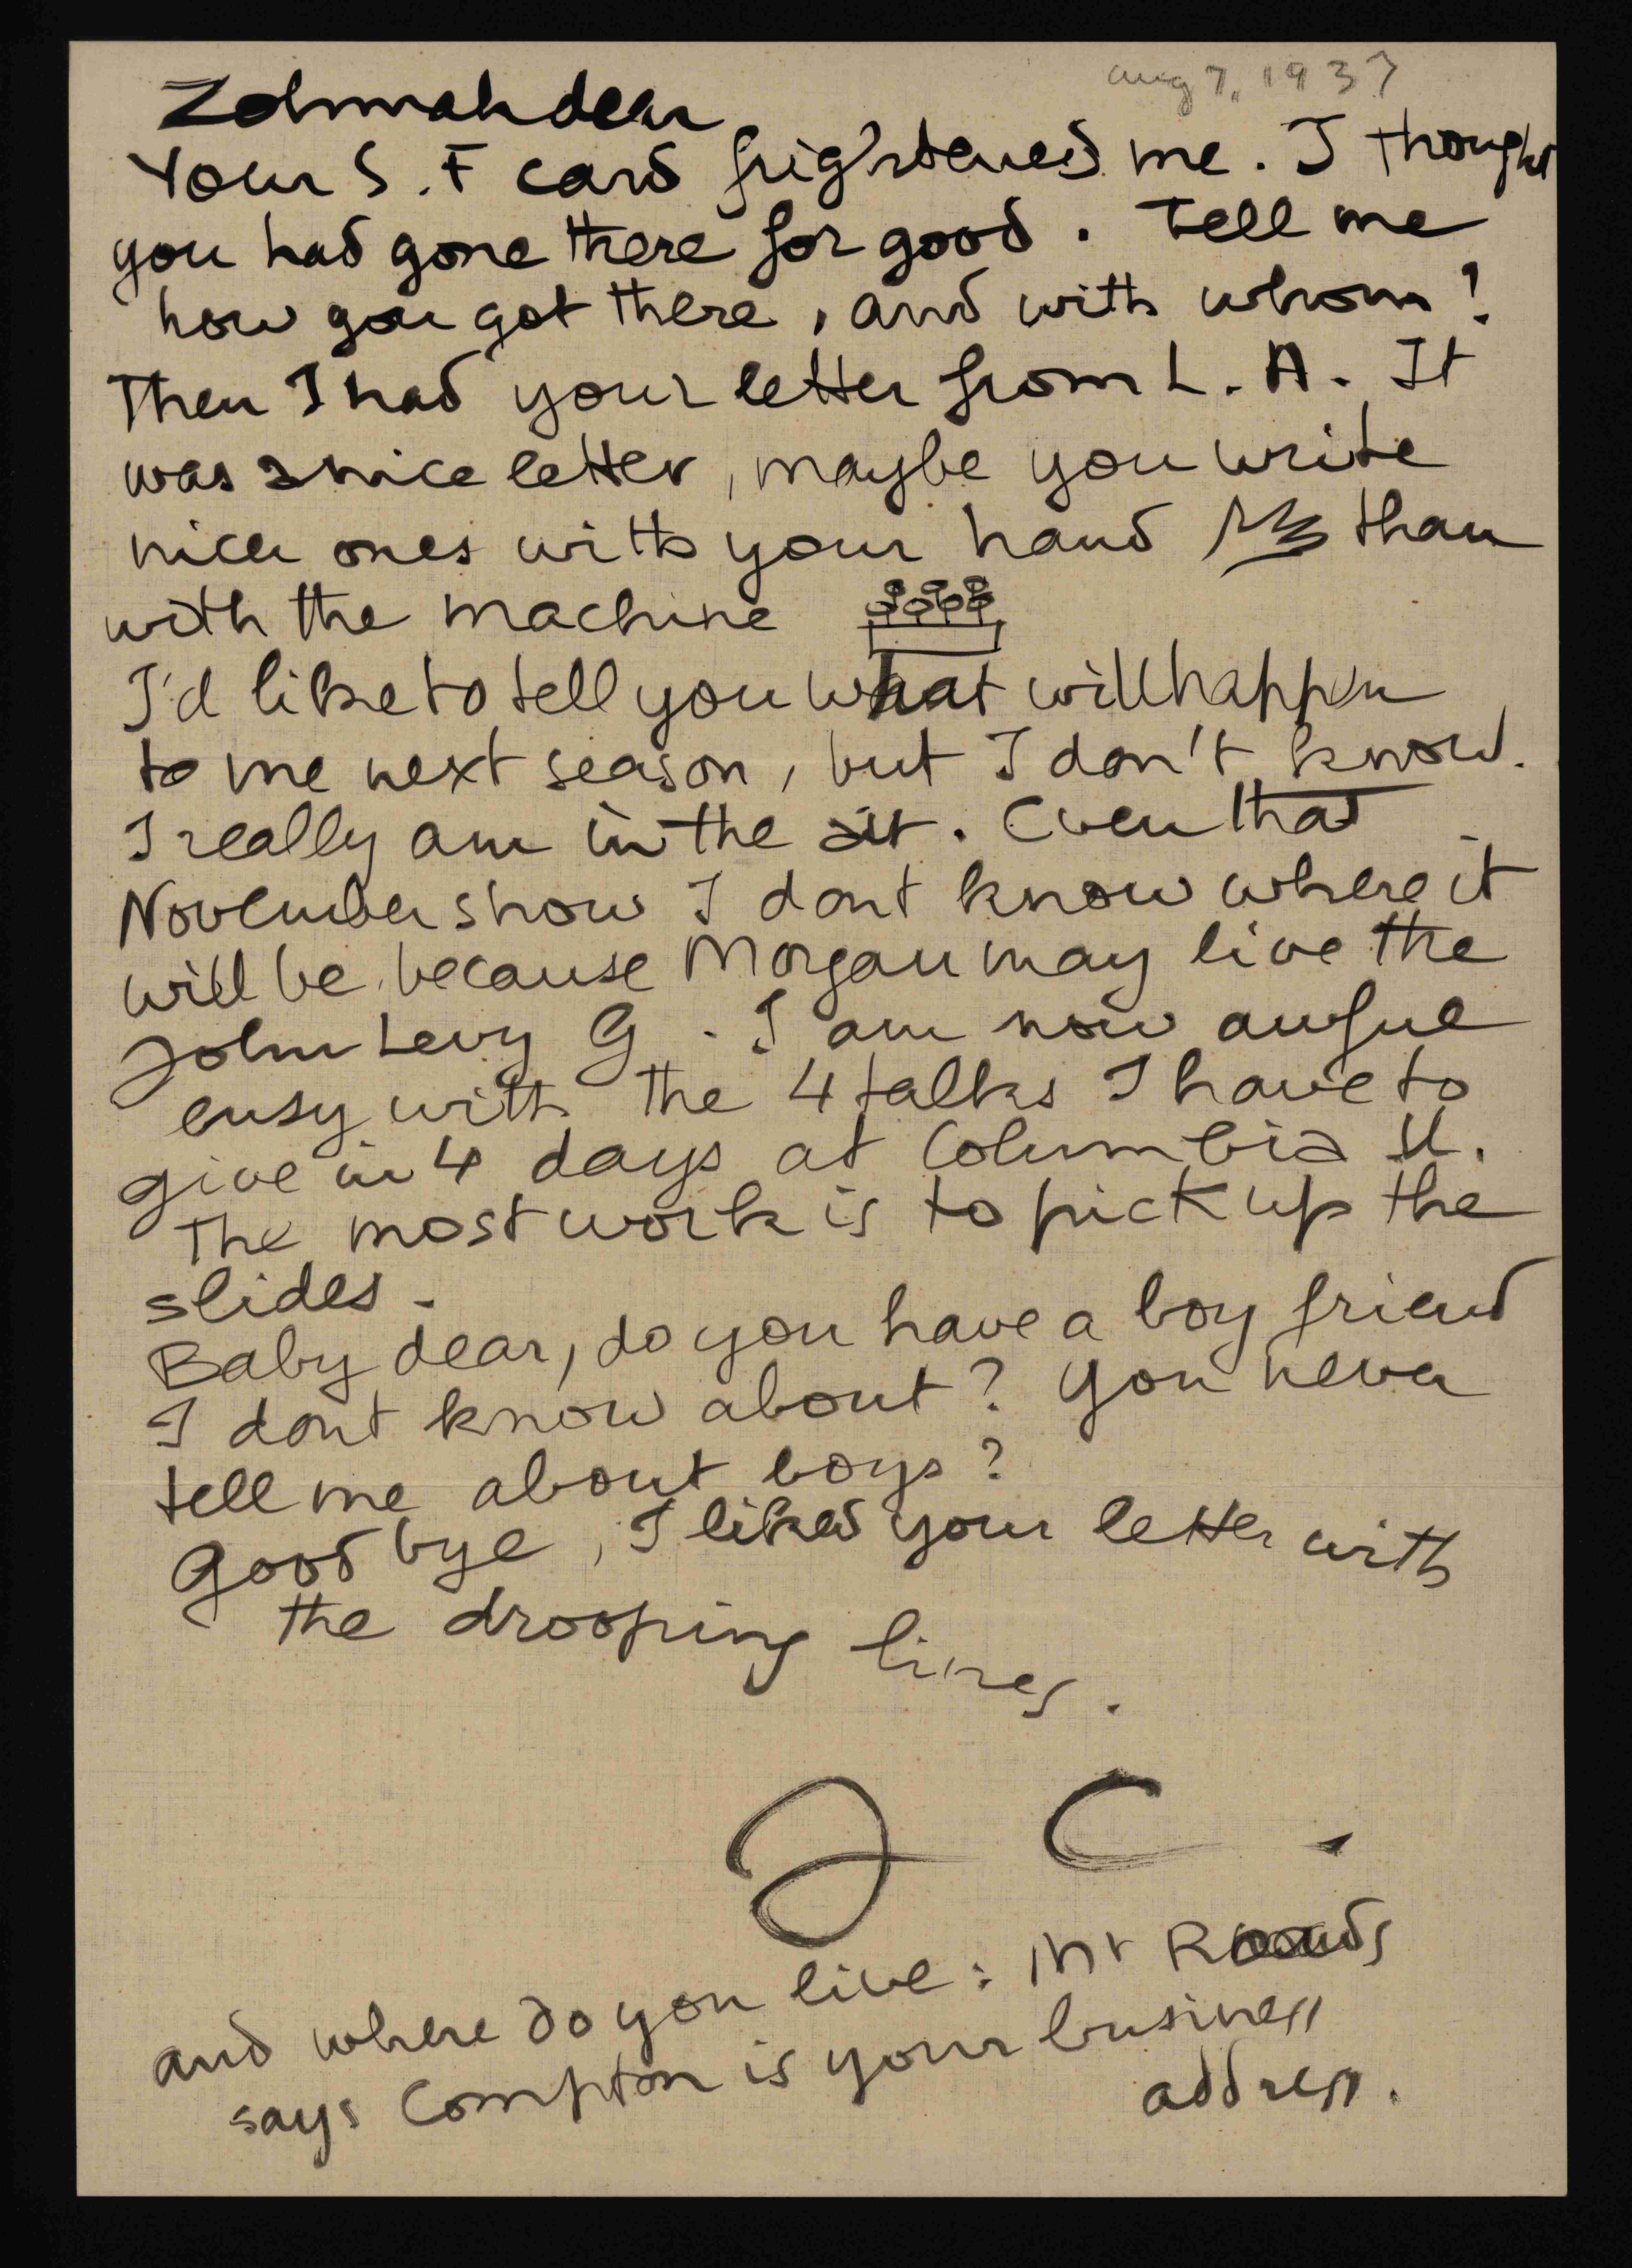 aug 7, 1937
Zohmah dear
Your S. F card frightened me. I thought
you had gone there for good. Tell me
how you got there, and with whom!
Then I had your letter from L. A. It
was a nice letter, maybe you write
nicer ones with your hand than
with the machine
I'd like to tell you what will happen
to me next season, but I don't know.
I really am in the air. Even that
November show I dont know where it
will be because Morgan may live the
John Levy G. I am now awful
busy with the 4 talks I have to
give in 4 days at Columbia U.
The most work is to pick up the
slides.
Baby dear, do you have a boy friend
I dont know about? You never
tell me about boys?
Good bye, I liked your letter with
the drooping lines.
J C.
and where do you live: Mr
says Compton is your business
address.